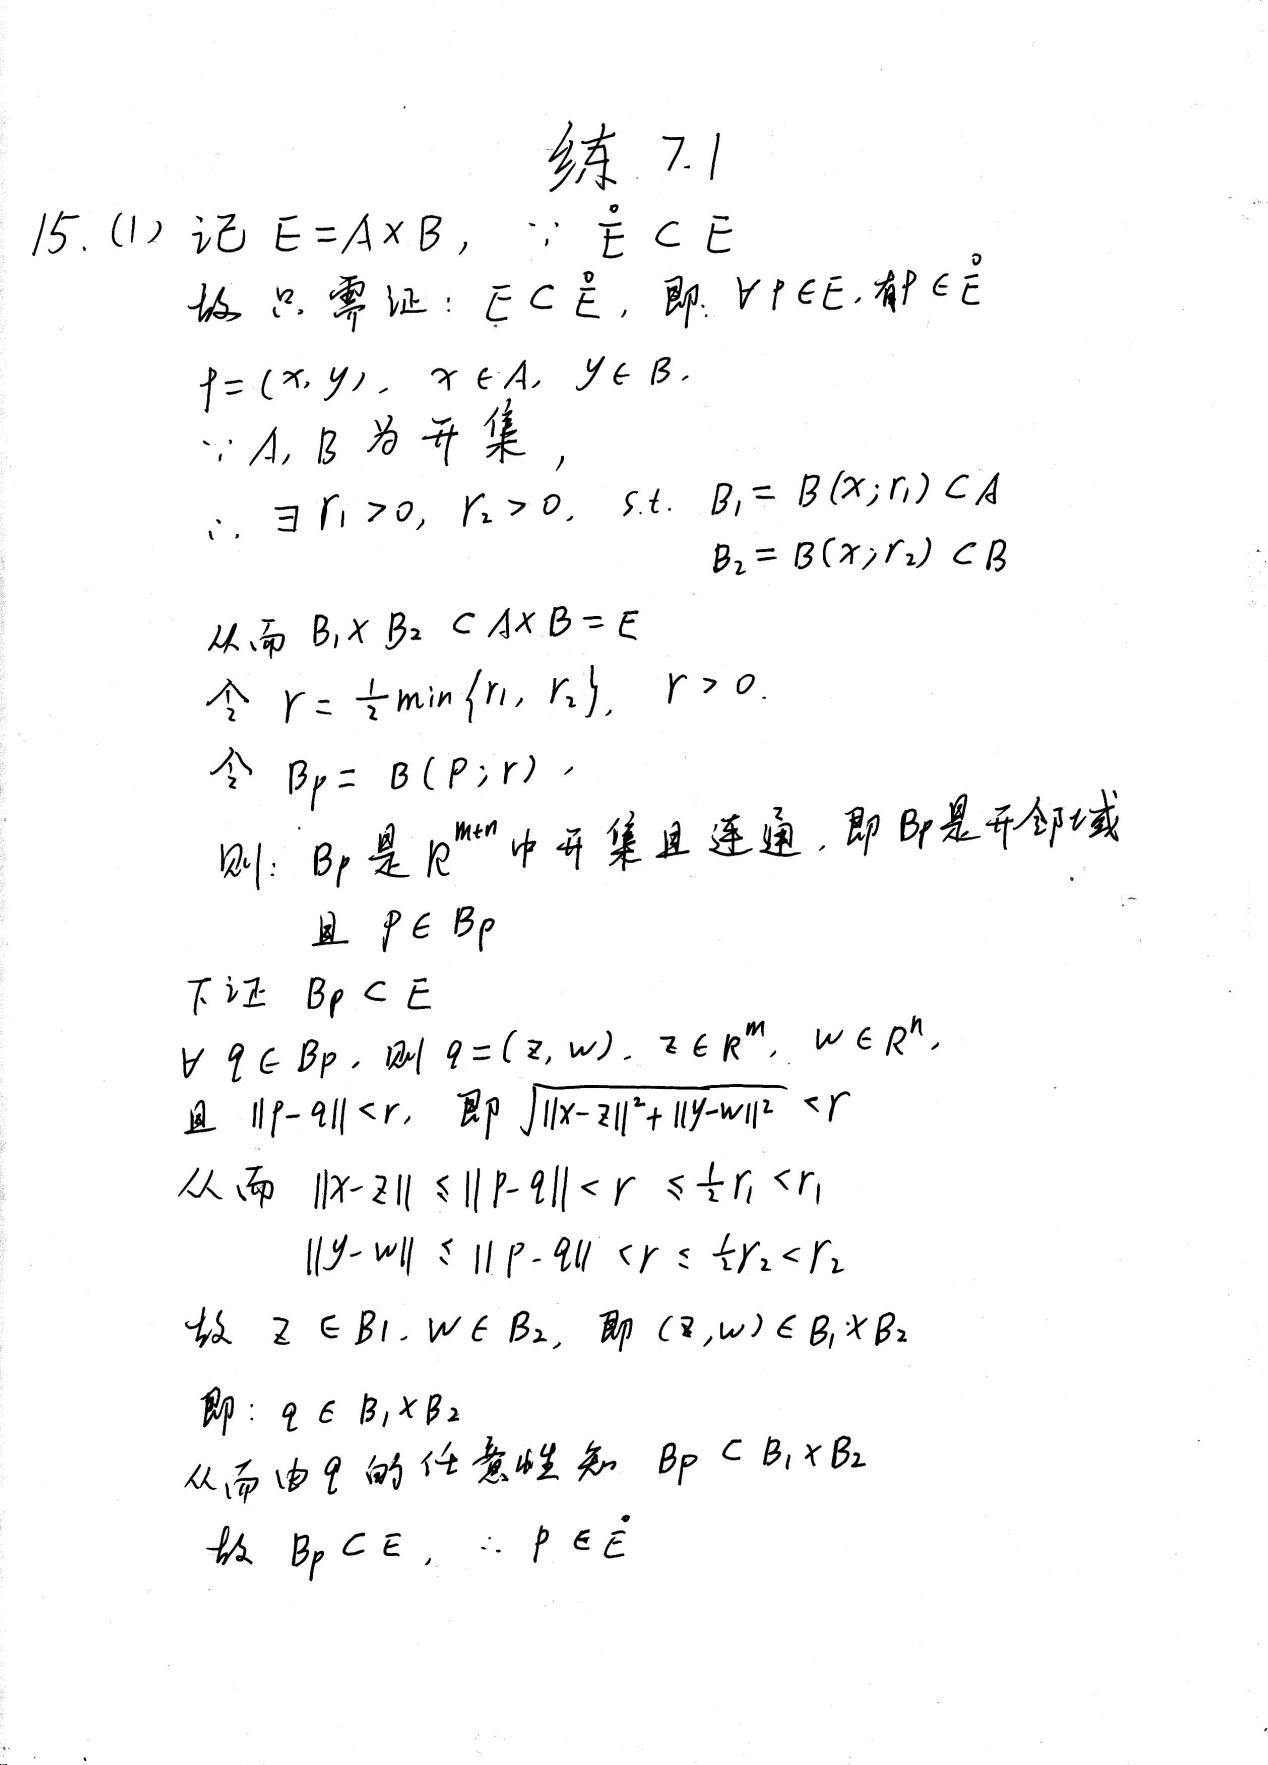 练 7.1
15. (1) 记 E=A×B, ∵ E̊ ⊂ E
故只需证: E⊂E̊, 即: ∀p∈E, 有p∈E̊
p=(x, y), x∈A, y∈B.
∵ A, B 为开集,
∴ ∃ r₁>0, r₂>0, s.t. B₁=B(x;r₁)⊂A
B₂=B(x;r₂)⊂B
从而 B₁×B₂ ⊂ A×B=E
令 r=½min{r₁, r₂}, r>0.
令 Bₚ=B(P;r),
则: Bₚ是 Rᵐ⁺ⁿ中开集且连通, 即Bₚ是开邻域
且 p∈Bₚ
下证 Bₚ⊂E
∀ q∈Bₚ, 则 q=(z, w), z∈Rᵐ, w∈Rⁿ,
且 ||p-q||<r, 即 √(||x-z||²+||y-w||²) <r
从而 ||x-z|| ≤ ||p-q|| < r ≤ ½r₁ < r₁
||y-w|| ≤ ||p-q|| < r ≤ ½r₂ < r₂
故 z∈B₁, w∈B₂, 即 (z,w)∈B₁×B₂
即: q∈B₁×B₂
从而由q的任意性知 Bₚ⊂B₁×B₂
故 Bₚ⊂E, ∴ p∈E̊